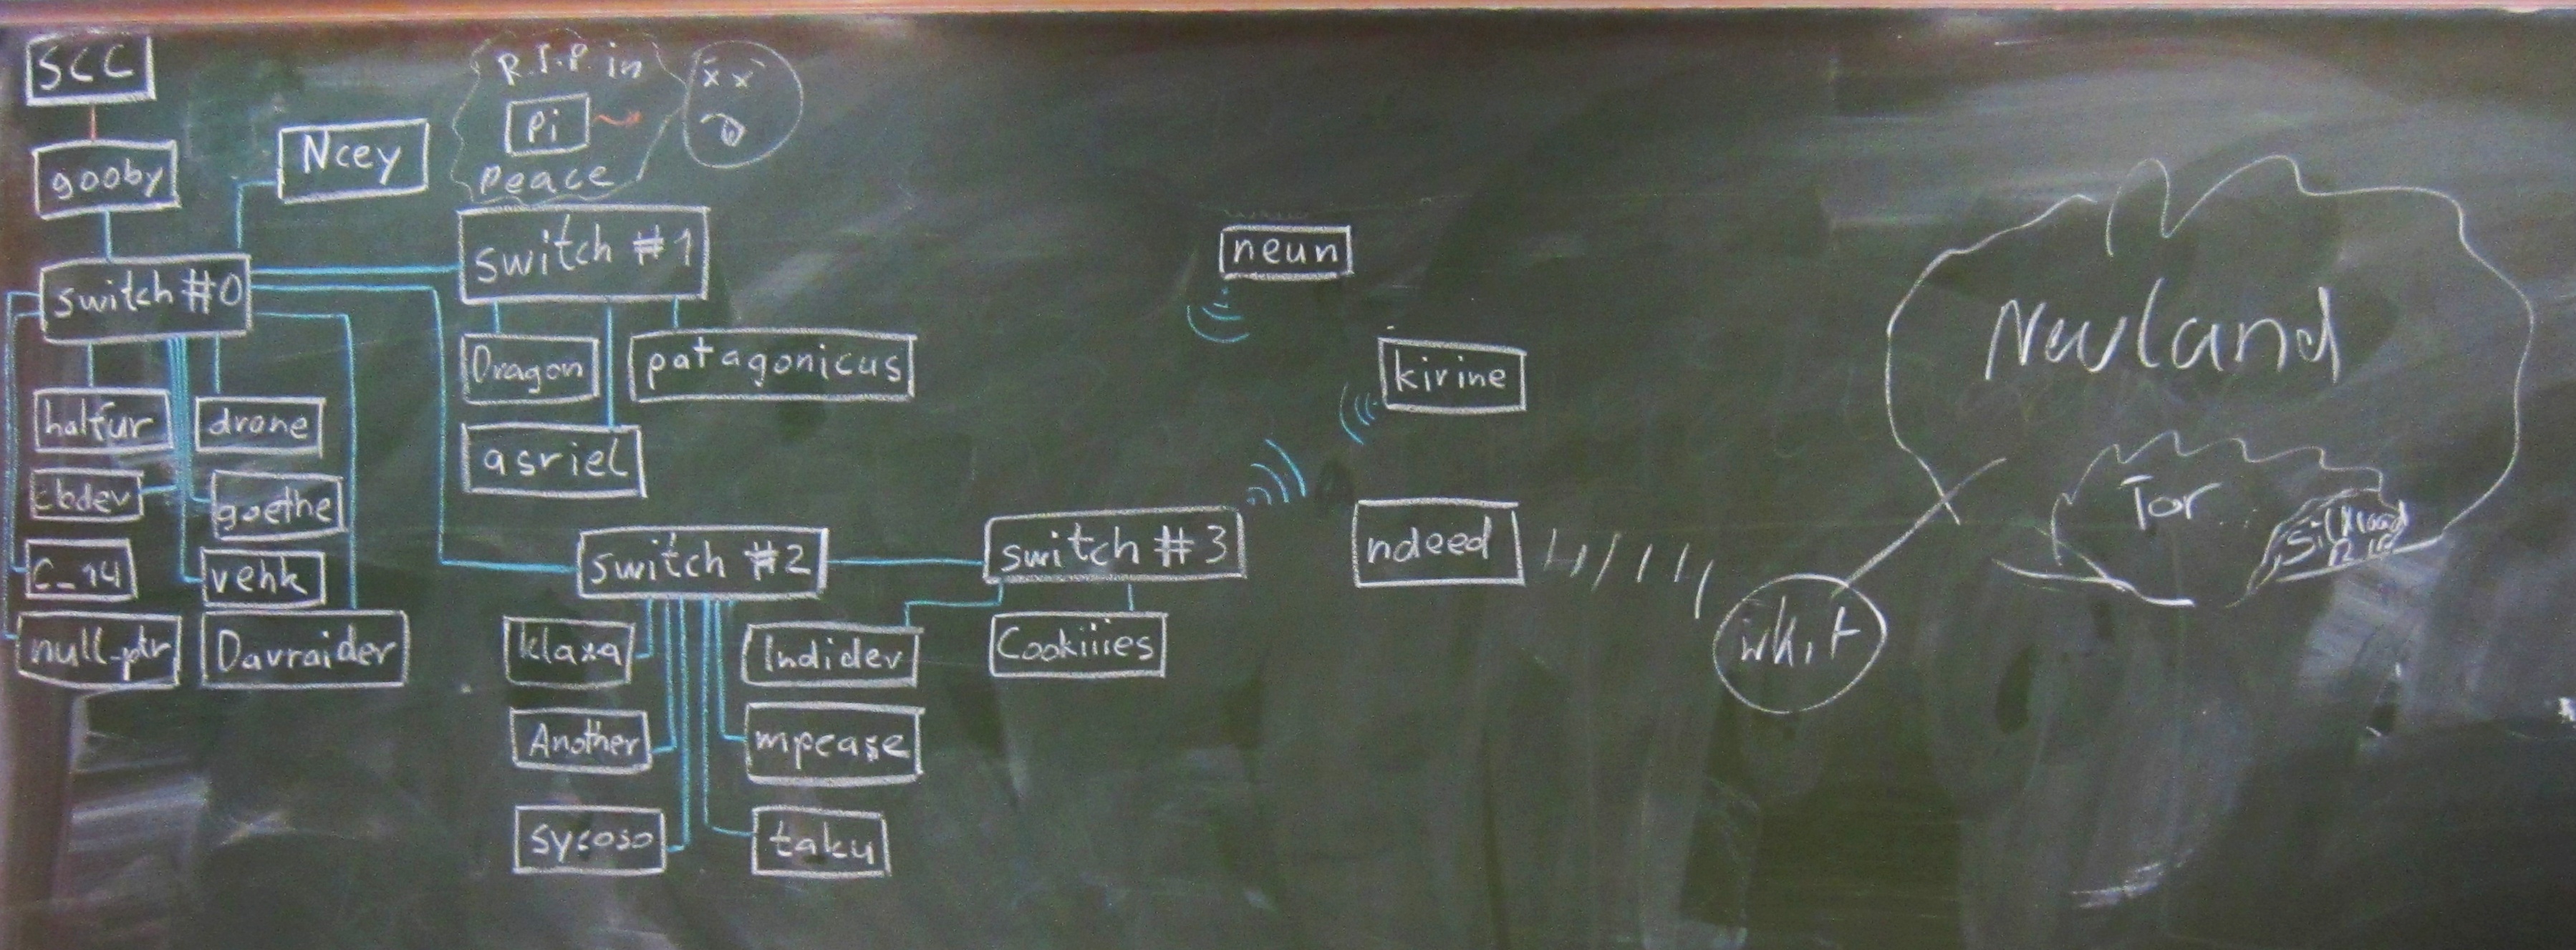 SCC
R.I.P. in
Pi
Peace
x x
gooby
Ncey
switch #0
switch #1
neun
Dragon
patagonicus
kirine
Neuland
halfur
drone
asriel
cbdev
goethe
Tor
switch #2
switch #3
ndeed
C_14
vehk
null_ptr
Davraider
klaxa
Indidev
Cookiiies
Another
mpease
sycoso
taku